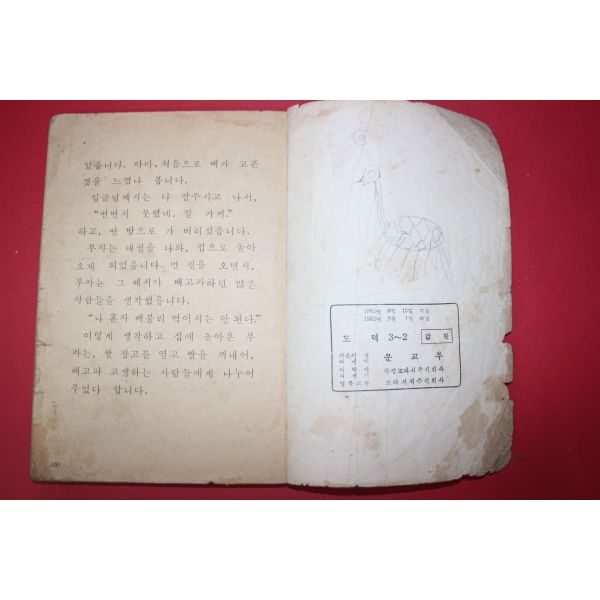 았읍니다. 아마, 처음으로 배가 고픈
것을 느꼈나 봅니다.
임금님께서는 다 잡수시고 나서,
“변변치 못했네. 잘 가게.”
하고, 딴 방으로 가 버리셨읍니다.
부자는 대궐을 나와, 집으로 돌아
오게 되었읍니다. 먼 길을 오면서,
부자는 그 때서야 배고파하던 많은
사람들을 생각했읍니다.
“나 혼자 배불리 먹어서는 안 된다.”
이렇게 생각하고 집에 돌아온 부
자는, 쌀 창고를 열고 쌀을 꺼내어,
배고파 고생하는 사람들에게 나누어
주었다 합니다.
100
1962년 8월 15일
1962년 9월 1일
도 덕 3~2
문 교 부
국정교과서주식회사